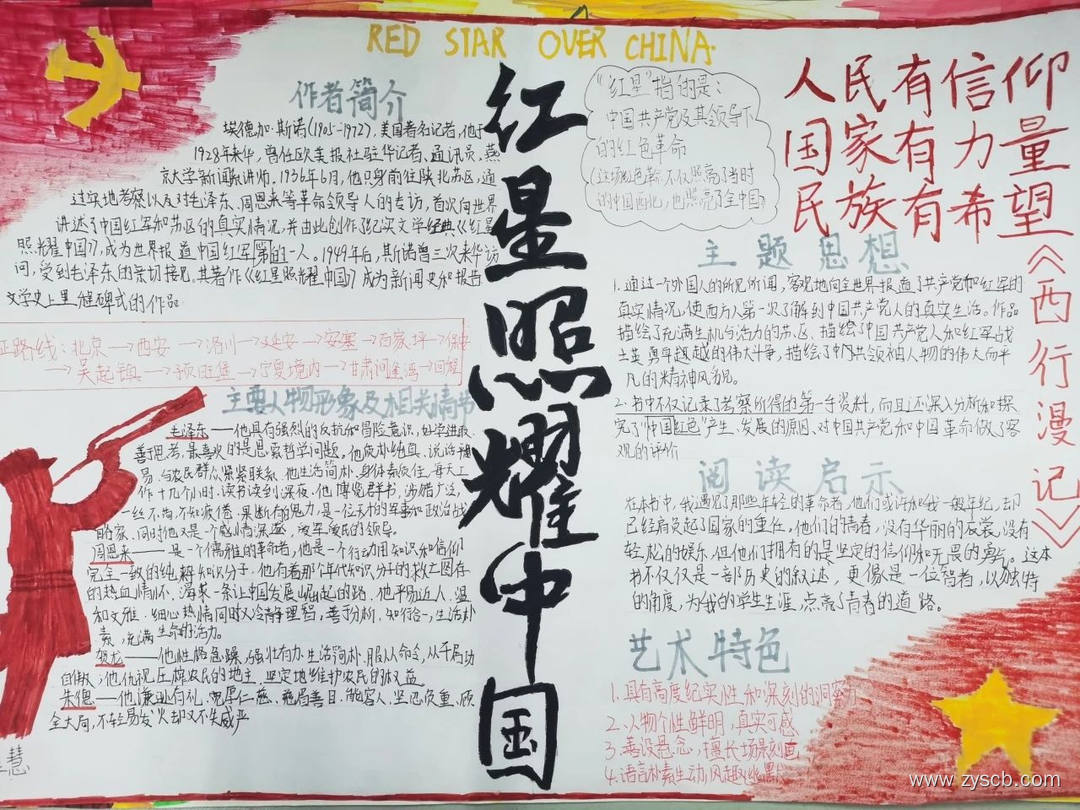 RED STAR OVER CHINA.
红星照耀中国
作者简介
埃德加·斯诺(1905-1972),美国著名记者,他于
1928年来华,曾任欧美报社驻华记者、通讯员、燕
京大学新闻系讲师。1936年6月,他只身前往陕北苏区,通
过实地考察以及对毛泽东、周恩来等革命领导人的专访,首次向世界
讲述了中国红军和苏区的真实情况,并由此创作了纪实文学经典《红星
照耀中国》,成为世界报道中国红军第的一人。1949年后,斯诺曾三次来华访
问,受到毛泽东的亲切接见。其著作《红星照耀中国》成为新闻史和报告
文学史上里程碑式的作品
路线:北京→西安→洛川→延安→安塞→百家坪→保安
→吴起镇→预旺堡→宁夏境内→甘肃河连湾→回程
主要人物形象及相关情节
毛泽东——他具有强烈的反抗和冒险意识,好学进取、
善思考,最喜欢的是思索哲学问题。他质朴纯真,说话
易,与农民群众紧紧联系。他生活简朴,身体素质佳,每天工
作十几个小时,读书读到深夜。他博览群书,涉猎广泛,
一丝不苟、不知疲倦、果断有魄力,是一位天才的军事和政治战
略家,同时他又是一个感情深邃,被军民的领导。
周恩来——是一个儒雅的革命者,他是一个行动用知识和信仰
完全一致的纯粹知识分子。他有着那个年代知识分子的救亡图存
的热血情怀、渴求一条让中国发展崛起的路。他平易近人、温
和文雅、细心热情同时又冷静理智,善于分析,知行合一,生活朴
素,充满生命的活力。
贺龙——他性格急躁、强壮有力、生活简朴、服从命令,从不居功
自傲;他仇视压榨农民的地主,坚定地维护农民的权益
朱德——他谦逊有礼、宽厚仁慈、慈眉善目、能容人、坚忍负重、顾
全大局,不轻易发火却又不失威严
慧
“红星”指的是:
中国共产党及其领导下
的红色革命
这场红色革命不仅照亮了当时
的中国西北,也照亮了全中国
人民有信仰
国家有力量
民族有希望
《西行漫记》
主题思想
1.通过一个外国人的所见所闻,客观地向全世界报道了共产党和红军的
真实情况,使西方人第一次了解到中国共产党人的真实生活。作品
描绘了充满生机与活力的苏区,描绘了中国共产党人和红军战
士英勇卓越的伟大斗争,描绘了中共领袖人物的伟大而平
凡的精神风貌。
2.书中不仅记录了考察所得的第一手资料,而且还深入分析和探
究了“中国红色”产生、发展的原因,对中国共产党和中国革命做了客
观的评价
阅读启示
在本书中,我遇见了那些年轻的革命者,他们或许和我一般年纪,却
已经肩负起了国家的重任。他们的青春,没有华丽的衣裳,没有
轻松的娱乐,但他们拥有的是坚定的信仰和无畏的勇气。这本
书不仅仅是一部历史的叙述,更像是一位智者,以独特
的角度,为我的学生生涯,点亮了青春的道路。
艺术特色
1.具有高度纪实性和深刻的洞察力
2.人物个性鲜明,真实可感
3.善设悬念,擅长场景刻画
4.语言朴素生动,风趣幽默
www.zyscb.com